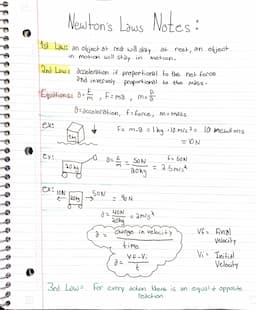 Newton's Laws Notes:
1st Law: an object at rest will stay at rest, an object
in motion will stay in motion.
2nd Law: acceleration is proportional to the net force
and inversely proportional to the mass.
Equations: a = F/m, F = ma, m = F/a
a = acceleration, F = force, m = mass
ex:
1kg
F = m·a = 1kg · 10 m/s² = 10 newtons
= 10N
ex:
20kg
a = F/m = 50N/20kg = 2.5 m/s²
F = 50N
ex: 10N
20kg
50N
= 40N
a = 40N/20kg = 2 m/s²
a = change in velocity/time
Vf = Final
Velocity
a = Vf-Vi/t
Vi = Initial
Velocity
3rd Law: For every action there is an equal & opposite
reaction